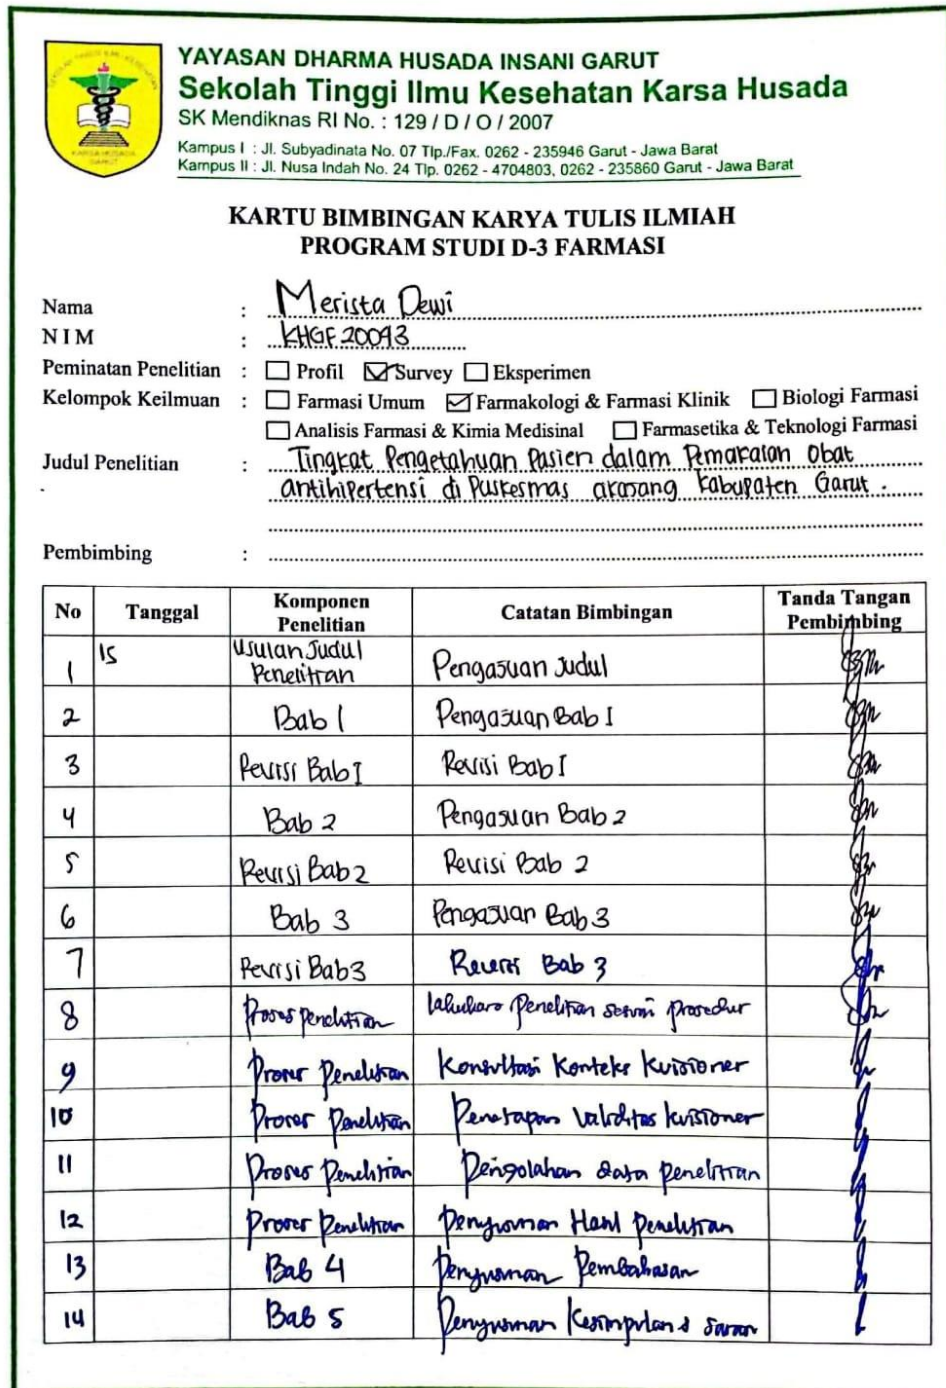 YAYASAN DHARMA HUSADA INSANI GARUT
Sekolah Tinggi Ilmu Kesehatan Karsa Husada
SK Mendiknas RI No. : 129 / D / O / 2007
Kampus I : Jl. Subyadinata No. 07 Tlp./Fax. 0262 - 235946 Garut - Jawa Barat
Kampus II : Jl. Nusa Indah No. 24 Tlp. 0262 - 4704803, 0262 - 235860 Garut - Jawa Barat
KARSA HUSADA
GARUT
KARTU BIMBINGAN KARYA TULIS ILMIAH
PROGRAM STUDI D-3 FARMASI
Nama : Merista Dewi
N I M : KHGF 20093
Peminatan Penelitian : Profil Survey Eksperimen
Kelompok Keilmuan : Farmasi Umum Farmakologi & Farmasi Klinik Biologi Farmasi
Analisis Farmasi & Kimia Medisinal Farmasetika & Teknologi Farmasi
Judul Penelitian : Tingkat Pengetahuan Pasien dalam Pemakaian Obat
antihipertensi di Puskesmas Kabupaten Garut .
Pembimbing :
No Tanggal Komponen Penelitian Catatan Bimbingan Tanda Tangan Pembimbing
1 15 Usulan Judul Penelitian Pengajuan Judul
2 Bab 1 Pengajuan Bab I
3 Revisi Bab I Revisi Bab I
4 Bab 2 Pengajuan Bab 2
5 Revisi Bab 2 Revisi Bab 2
6 Bab 3 Pengajuan Bab 3
7 Revisi Bab 3 Revisi Bab 3
8 Proses penelitian Penelitian sesuai prosedur
9 Proses Penelitian Konsultasi Konteks Kuisioner
10 Proses Penelitian Penetapan Validitas Kuisioner
11 Proses Penelitian Pengolahan data penelitian
12 Proses Penelitian Penyusunan Hasil penelitian
13 Bab 4 Penyusunan Pembahasan
14 Bab 5 Penyusunan Kesimpulan & Saran